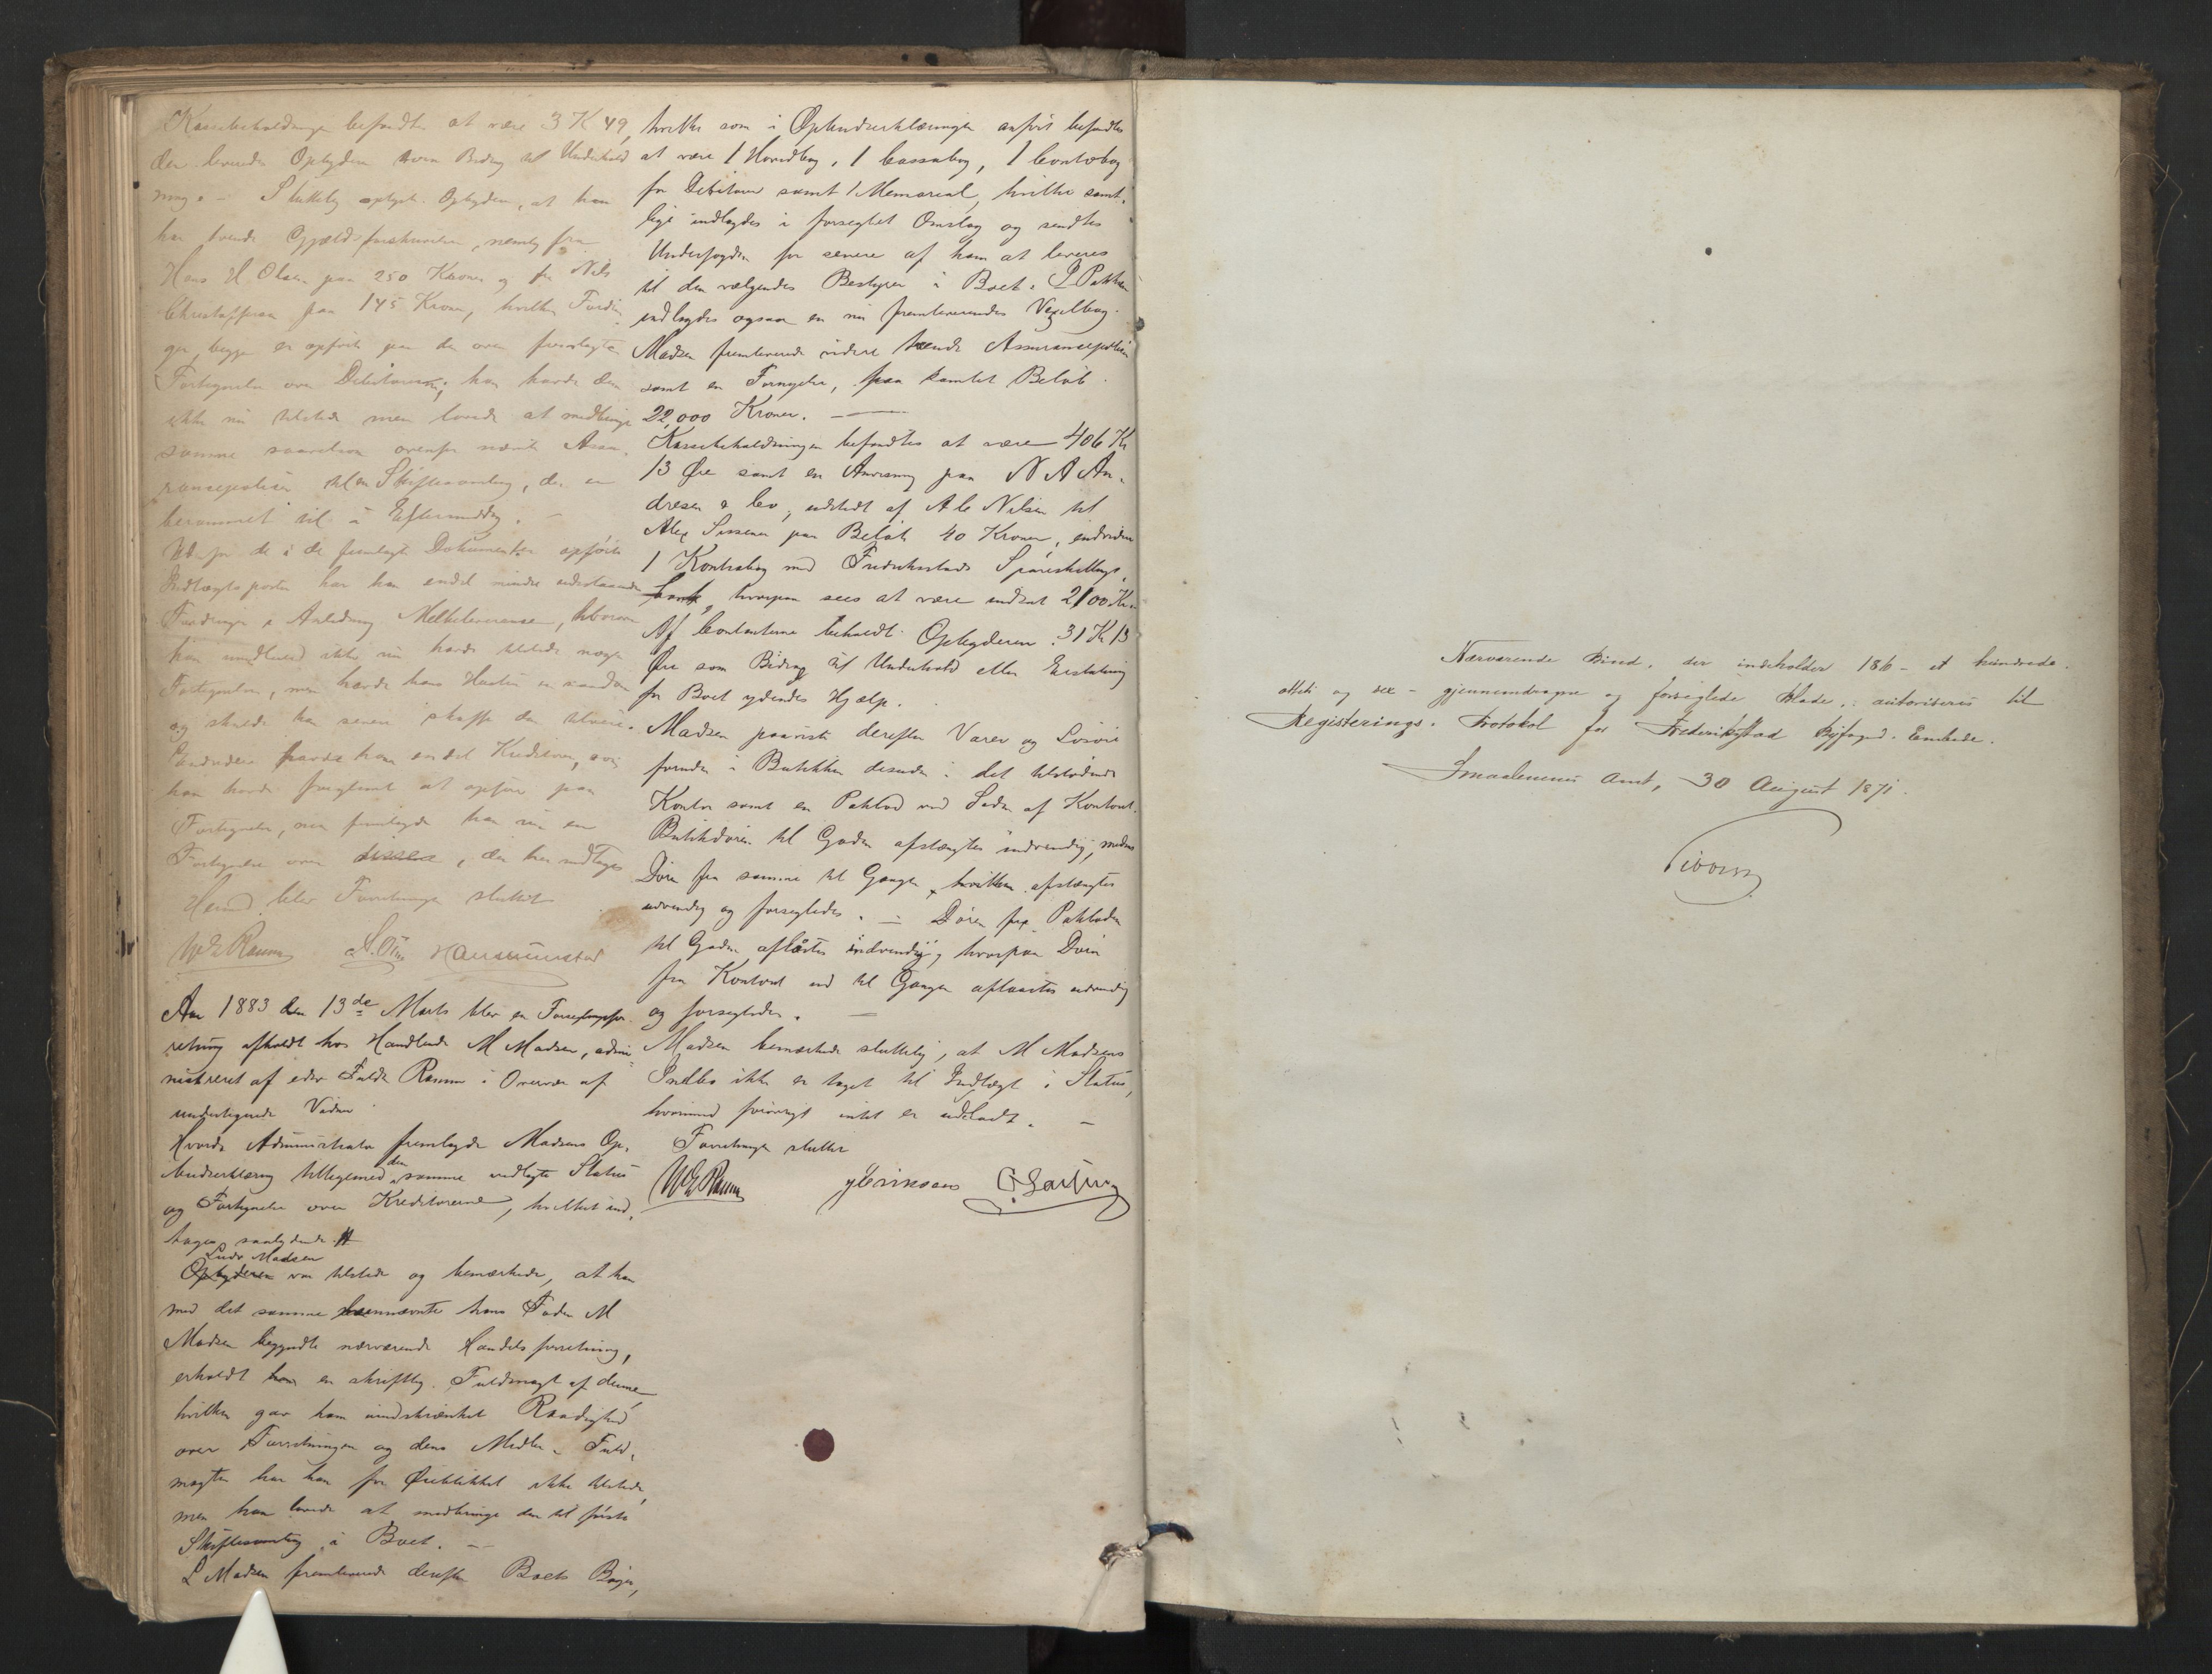 Kassebeholdningen befandtes at være 3 K 49,
den levendes Opbyderen som Bidrag til Underhold
ning. — Sluttelig oplyste Opbyderen, at han
har tvende Gjældsfordringer, nemlig fra
Hans H Olsen paa 250 Kroner og fra Nils
Christoffersen paa 145 Kroner, hvilke Fordrin
ger begge er opført paa den oven fremlagte
Fortegnelse over Debitorer; han havde dem
ikke nu tilstede men lovede at medbringe
samme saavelsom ovenfor nævnte Assu-
rancepolicer til en Skiftesamling, der er
berammet til i Eftermiddag. —
Udenfor de i de fremlagte Dokumenter opførte
Indtægtsposter har han endel mindre udestaaende
Fordringer i Anledning Melkeleverance, hvorom
han imidlertid ikke nu havde tilstede nogen
Fortegnelse, men havde hans Hustru en saadan
og skulde han senere skaffe den tilveie.
Endvidere havde han endel Kreditorer, som
han havde forglemt at opføre paa
Fortegnelsen, men fremlagde han nu en
Fortegnelse over disse, der her indtages
Hermed blev Forretningen sluttet
Aar 1883 den 13de Marts blev en Forseglingsfor-
retning afholdt hos Handlende M Madsen, admi-
nistreret af edsv Fuldm Ramm i Overvær af
undertegnede Vidner
Hvorda Administrator fremlagde Madsens Op-
budserklæring tilligemed den samme vedlagte Status
og Fortegnelse over Kreditorerne, hvilket ind-
tages saalydende
Ludv Madsen
Opbyderen var tilstede og bemærkede, at han
med det samme hans Fader M
Madsen begyndte nærværende Handelsforretning,
erholdt han en skriftlig Fuldmagt af denne,
hvilken gav ham uindskrænket Raadighed
over Forretningen og dens Midler. Fuld-
magten har han for Øieblikket ikke tilstede,
men han lovede at medbringe den til første
Skiftesamling i Boet. —
L Madsen fremleverede derefter Boets Bøger,
hvilke som i Opbudserklæringen anført befandtes
at være 1 Hovedbog, 1 Cassabog, 1 Contobog
for Debitorer samt 1 Memorial, hvilke samt-
lige indlagdes i forseglet Omslag og sendtes
Underfogden for senere af ham at leveres
til den vælgendes Bestyrer i Boet. I Pakken
indlagdes ogsaa en nu fremleverendes Vexelbog.
Madsen fremleverede videre tvende Assurancepolicer
samt en Fornyelse, paa samlet Beløb
22,000 Kroner. —
Kassebeholdningen befandtes at være 406 Kr
13 Øre samt en Anvisning paa N A An-
dresen & Co, udstedt af A C Nilsen til
Alex paa Beløb 40 Kroner, endvidere
1 Kontrabog med Fredriksstads Spareskillings-
bank, hvorpaa sees at være indsat 2100 Kr.
Af Contanterne beholdt Opbyderen 31 Kr 13
Øre som Bidrag til Underhold eller Erstatning
for Boet ydendes Hjælp.
Madsen paaviste derefter Varer og Løsøre
forinden i Butikken desuden i det tilstødende
Kontor samt en Pakbod ved Siden af Kontoret.
Butikdøren til Gaden afstængtes indvendig, medens
Døren fra samme til Gangen hvilken afstængtes
udvendig og forsegledes. — Døren fra Pakboden
til Gaden aflaastes indvendig, hvorpaa Døren
fra Kontoret ud til Gangen aflaastes udvendig
og forsegledes. —
Madsen bemærkede sluttelig, at M Madsens
Indbo ikke er taget til Indtægt i Status,
hvorimod forøvrigt intet er udeladt. —
Forretningen sluttet
Nærværende Bind, der indeholder 186 – et hundrede
otteti og sex – gjennemdragne og forseglede Blade, autoriseres til
Registrerings-Protokol for Frederikstad Byfoged-Embede.
Smaalenenes Amt, 30 August 1871.